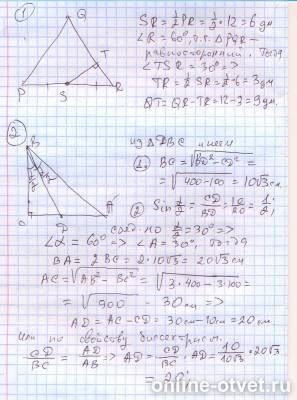 1
Q
T
P
S
R
SR = 1/2 PR = 1/2 · 12 = 6 дм
∠R = 60°, т.к. △PQR –
равносторонний. Тогда
∠TSR = 30° ⇒
TR = 1/2 SR = 1/2 · 6 = 3 дм
QT = QR - TR = 12 - 3 = 9 дм.
2
B
C
D
A
из △DBC имеем
1) BC = √BD² - CD² =
= √400 - 100 = 10√3 см.
2) Sin α/2 = CD/BD = 10/20 = 1/2
α/2 = 30° ⇒
∠α = 60° ⇒ ∠A = 30°, тогда
BA = 2BC = 2 · 10√3 = 20√3 см
AC = √AB² - BC² = √3 · 400 - 3 · 100 =
= √900 = 30 см ⇒
AD = AC - CD = 30 см - 10 см = 20 см
или по свойству биссектрисы.
CD/BC = AD/AB ⇒ AD = CD/BC · AD = 10/10√3 · 20√3
= 20
online-otvet.ru